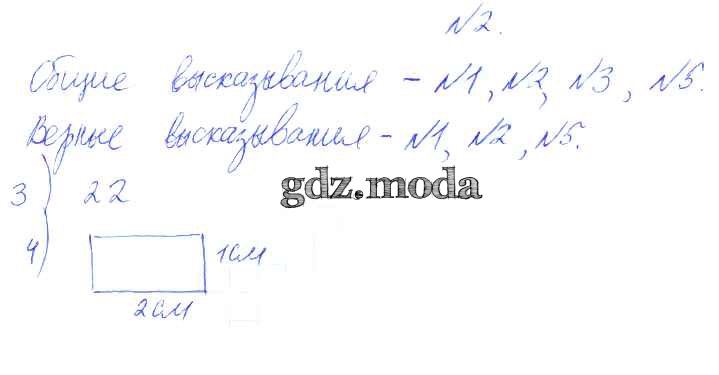 №2.
Общие высказывания - №1, №2, №3, №5.
Верные высказывания - №1, №2, №5.
3) 22
gdz.moda
4) 1см
2см